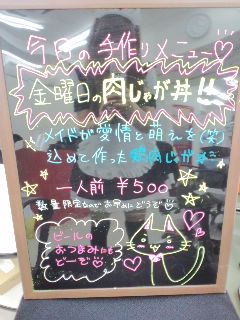 今日の手作りメニュー♡
金曜日の肉じゃが丼!!
メイドが愛情と萌えを(笑)
込めて作った肉じゃが
一人前 ¥500
数量限定なのでお早めにどうぞ
ビールの
おつまみにも
どーぞ